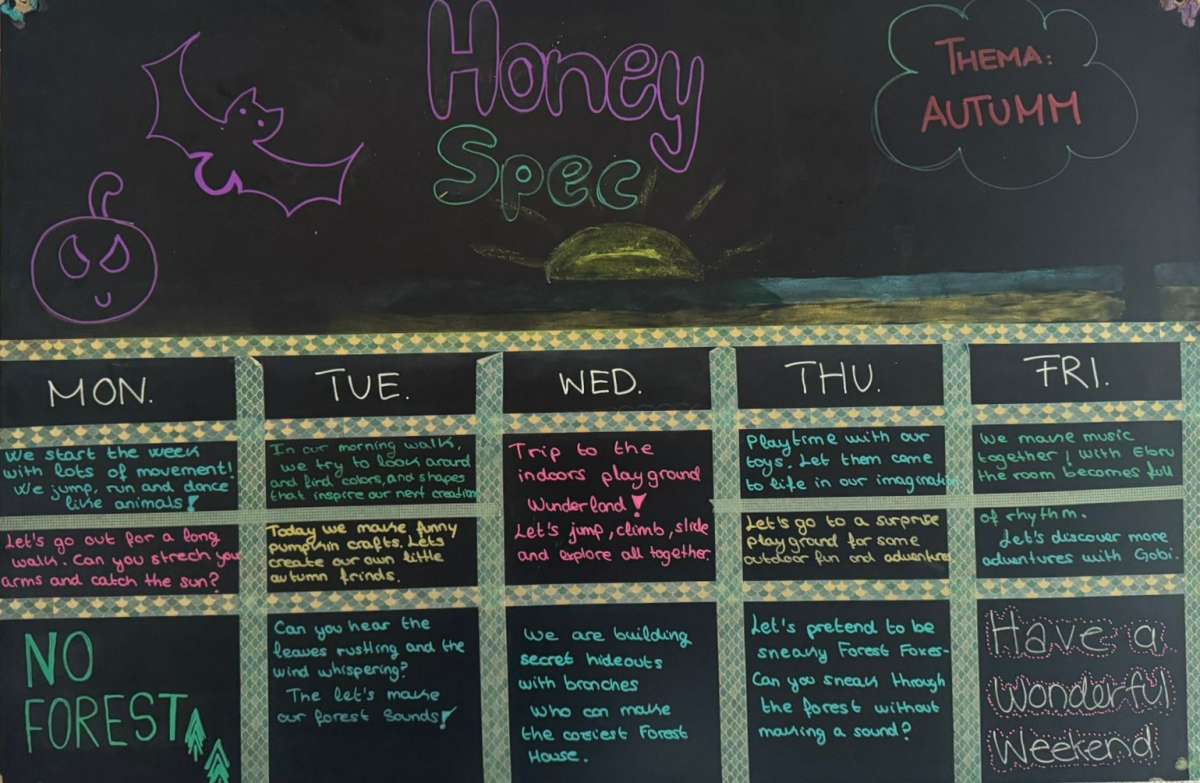 Honey
Spec
THEMA:
AUTUMM
MON.
TUE.
WED.
THU.
FRI.
We start the week
with lots of movement!
We jump, run and dance
like animals!
Let's go out for a long
walk. Can you strech you
arms and catch the sun?
NO
FOREST
In our morning walk,
we try to look around
and find colors, and shapes
that inspire our next creation
Today we make funny
pumpkin crafts. Lets
create our own little
autumn frinds.
Can you hear the
leaves rustling and the
wind whispering?
The let's make
our forest sounds!
Trip to the
indoors playground
Wunderland!
Let's jump, climb, slide
and explore all together.
We are building
secret hideouts
with branches
Who can make
the coziest Forest
House.
Playtime with our
toys. Let them come
to life in our imagination
Let's go to a surprise
playground for some
outdoor fun and adventures
Let's pretend to be
sneaky Forest Foxes-
Can you sneak through
the forest without
making a sound?
We make music
together, with Ebru
the room becomes full
of rhythm.
Let's discover more
adventures with Gobi.
Have a
Wonderful
Weekend